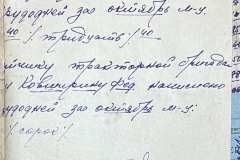 рудодней за октябрь м-ц
40 /тридцать/ 40
тнику тракторной бригады
у Ковширину Фед. начислено
удодней за октябрь м-ц:
/сорок/